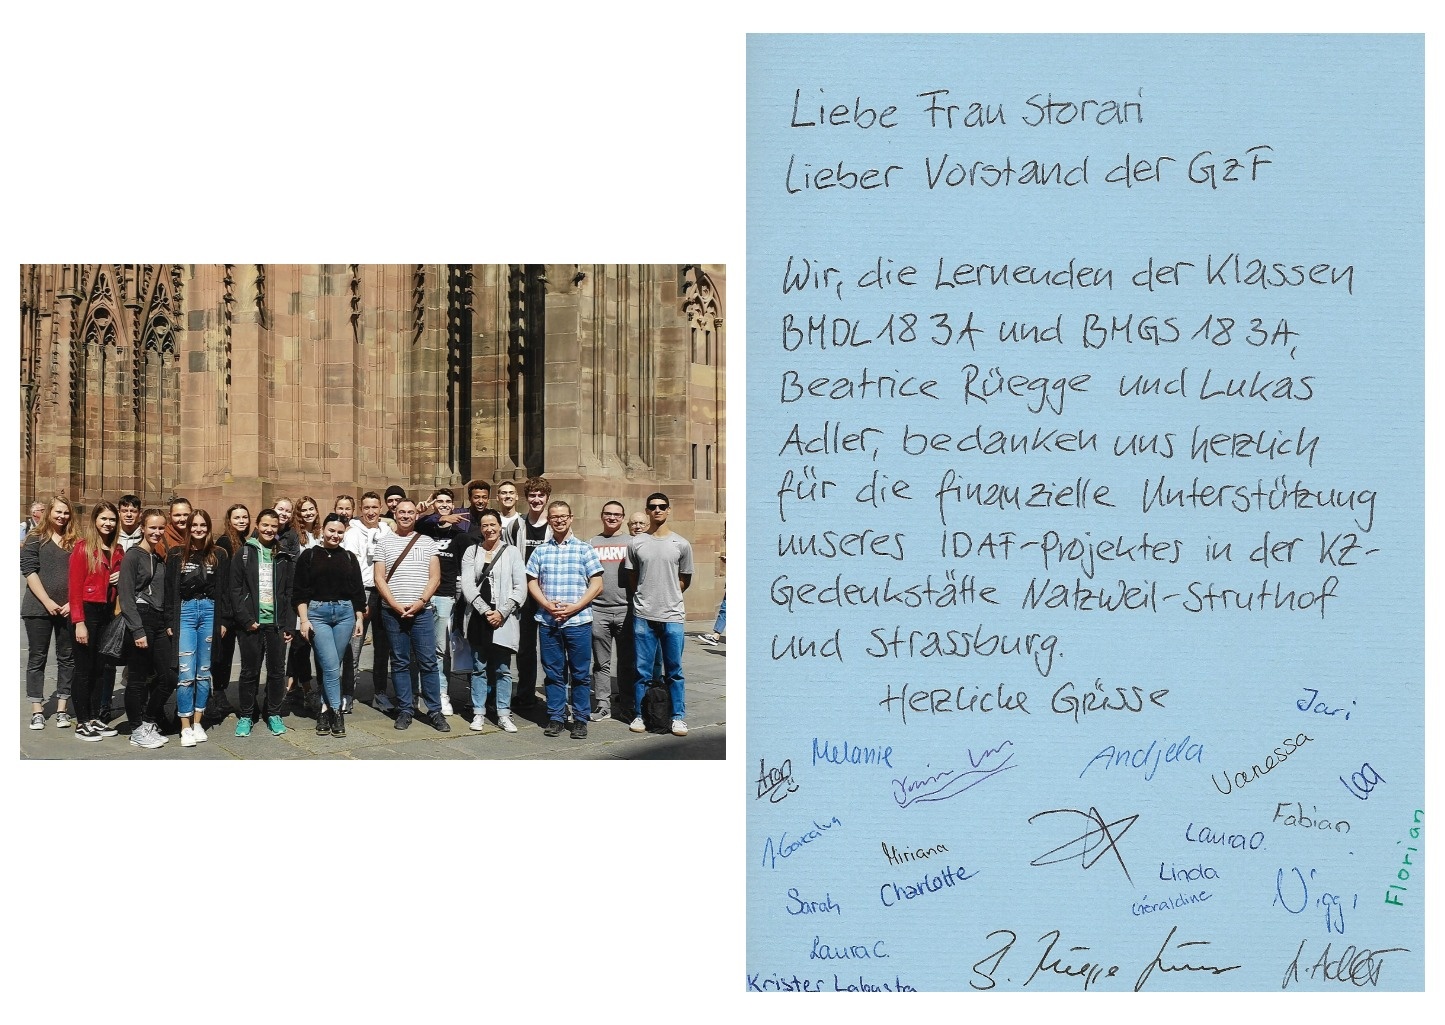 Liebe Frau Storari
Lieber Vorstand der GzF
Wir, die Lernenden der Klassen
BMDL 18 3A und BMGS 18 3A,
Beatrice Rüegge und Lukas
Adler, bedanken uns herzlich
für die finanzielle Unterstützung
unseres IDAF-Projektes in der KZ-
Gedenkstätte Natzweil-Struthof
und Strassburg.
Herzliche Grüsse
Jari
Aron
Melanie
Andjela
Vanessa
Lea
Fabian
Laura O.
Miriana
Charlotte
Linda
Géraldine
Viggi
Florian
Sarah
Laura C.
B. Rüegge
L. Adler
Krister
MARV